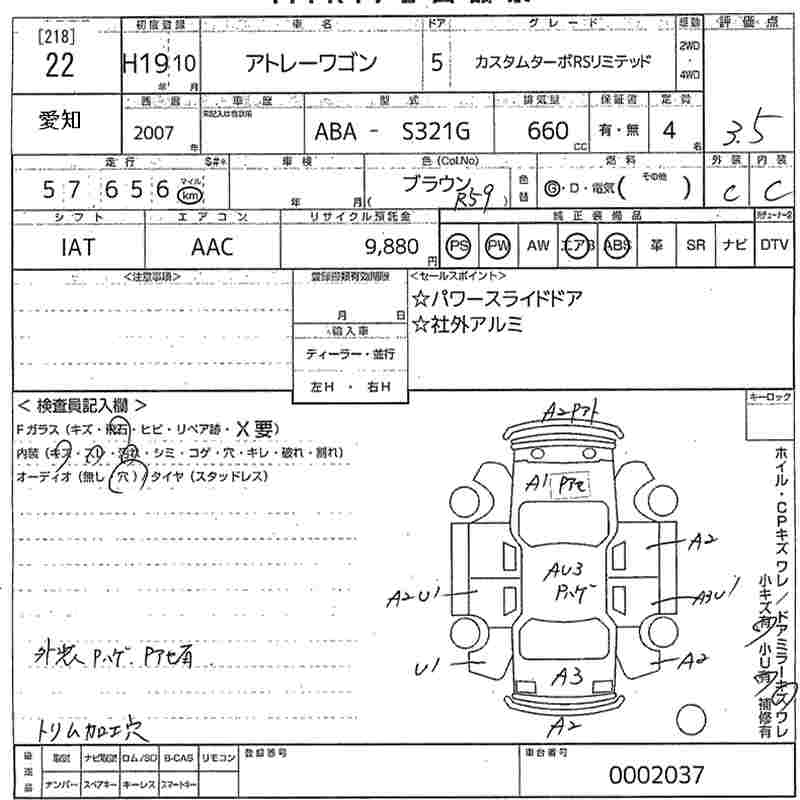 [218]
22
初度登録
H19 10
年 月
車名
アトレーワゴン
ドア
5
グレード
カスタムターボRSリミテッド
駆動
2WD
・
4WD
評価点
3.5
愛知
西暦
2007
年
車歴
型式
ABA - S321G
排気量
660
CC
保証書
有・無
定員
4
名
外装 内装
C C
走行
57656
マイル
km
車検
年 月
色(Col.No)
ブラウン
( R59 )
色替
燃料
G・D・電気( その他 )
シフト
IAT
エアコン
AAC
リサイクル預託金
9,880
円
純正装備品
PS PW AW エアB ABS 革 SR ナビ DTV
<注意事項>
登録書類有効期限
月 日
輸入車
ディーラー・並行
左H ・ 右H
<セールスポイント>
☆パワースライドドア
☆社外アルミ
キーロック
< 検査員記入欄 >
Fガラス(キズ・飛石・ヒビ・リペア跡・X要)
内装(キズ・スレ・汚れ・シミ・コゲ・穴・キレ・破れ・割れ)
オーディオ(無し・穴)/タイヤ(スタッドレス)
外装 Pハゲ. Pアセ有
トリム加工穴
A1 Pアセ
AU3
Pハゲ
A2
A2 U1
A3U1
U1
A3
A2
A2
ホイル・CPキズワレ/ドアミラーキズワレ
小キズ有 小U有 補修有
取説 ナビ取説 ロム/SD B-CAS リモコン
ナンバー スペアキー キーレス スマートキー
登録番号
車台番号
0002037